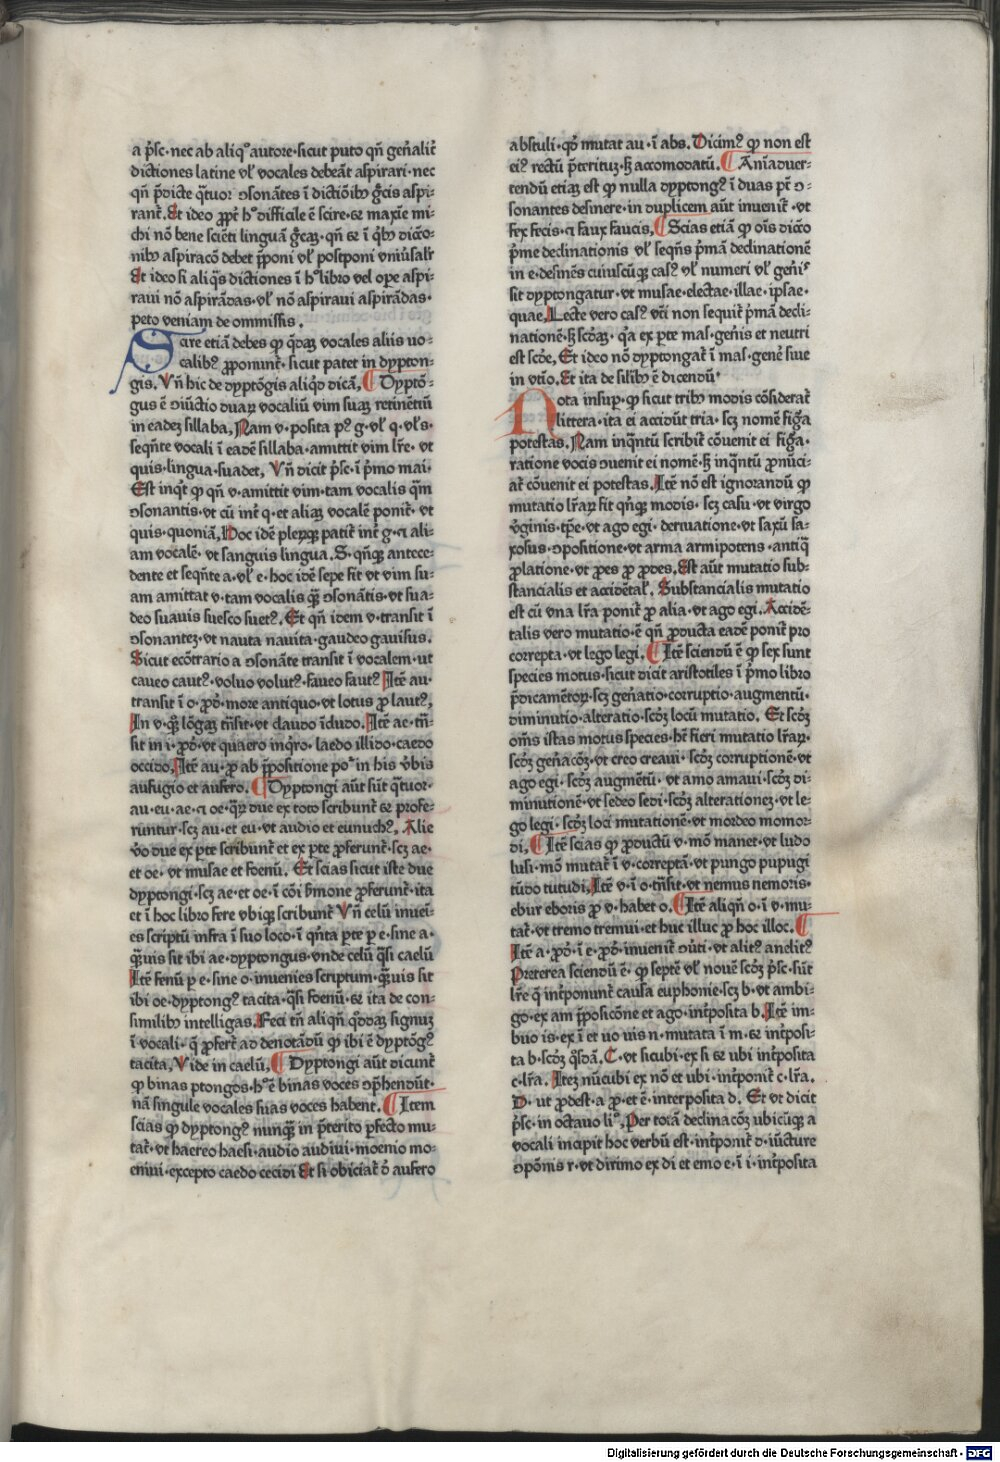 a p̄sc· nec ab aliqͦ autore· sicut puto qn̄ gen̄alit᷑
dictiones latine vl̓ vocales debeāt aspirari· nec
qn̄ p̄dicte q̄tuor ↄsonātes ī dictōibꝫ gͤcis aspi⸗
rant᷑. Et ideo ꝓpt᷑ hͦ difficile ē scire· ⁊ maxīe mi⸗
chi nō bene sciēti linguā gͤcaꝫ· qn̄ ⁊ ī qͥbꝫ dictō⸗
nibꝫ aspiracō debet p̄poni vl̓ postponi vniūsalr̄
Et ideo si aliqͥs dictiones ī hͦ libro vel ope aspi⸗
raui nō aspirādas· vl̓ nō aspiraui aspirādas·
peto veniam de omissis.
Scire etiā debes ꝙ qͣdaꝫ vocales aliis uo⸗
calibꝰ ꝓponunt᷑· sicut patet in dypton⸗
gis. Vn̄ hic de dyptōgis aliqͥd dicā. ¶ Dyptō⸗
gus ē ↄiūctio duaꝝ vocaliū vim suaꝫ retinētiū
in eadeꝫ sillaba. Nam v· posita pꝰ g· vl̓ q· vl̓ s·
seqn̄te vocali ī eadē sillaba· amittit vim lr̄e· vt
quis· lingua· suadet. Vn̄ dicit p̄sc· ī pͥmo mai·
Est inqͥt ꝙ qn̄ v· amittit vim· tam vocalis qͣm
ↄsonantis· vt cū int᷑ q· et aliaꝫ vocalē ponit᷑· vt
quis· quoniā. Hoc idē pleꝝqꝫ patit᷑ int᷑ g· ⁊ ali⸗
am vocalē· vt sanguis lingua. S· qn̄qꝫ antece⸗
dente et seqn̄te a· vl̓ e· hoc idē sepe fit vt vim su⸗
am amittat v· tam vocalis qͣꝫ ↄsonātis· vt sua⸗
deo suauis suesco suetꝰ. Et qn̄ idem v· transit ī
ↄsonanteꝫ· vt nauta nauita· gaudeo gauisus·
Sicut ecōtrario a ↄsonāte transit ī vocalem· ut
caueo cautꝰ· voluo volutꝰ· faueo fautꝰ. Itē au·
transit ī o· ꝓdͨ· more antiquo· vt lotus ꝓ lautꝰ.
In v· qͣꝫ lōgaꝫ trāsit· vt claudo īcludo. Itē ae· trā⸗
sit in i· ꝓdͨ· vt quaero inqͥro· laedo illido· caedo
occido. Itē au· ꝓ ab p̄positione poͥ in his v̓bis
aufugio et aufero. ¶ Dyptongi aūt sūt q̄tuor·
au· eu· ae· ⁊ oe· qͣꝝ due ex toto scribunt᷑ ⁊ profe⸗
runtur· scꝫ au· et eu· vt audio et eunuchꝰ. Alie
v̓o due ex ꝑte scribunt᷑ et ex ꝑte ꝓferunt᷑· scꝫ ae·
et oe· vt musae et foenū. Et scias sicut iste due
dyptongi· scꝫ ae· et oe· ī cōi sermone ꝓferunt᷑· ita
et ī hoc libro fere vbiqꝫ scribunt᷑ Vn̄ celū inueī⸗
es scriptū infra ī suo loco· ī qͥnta ꝑte ꝑ e· sine a·
qͣꝫuis sit ibi ae· dyptongus· vnde celū· qͣsi caelū
Itē fenū ꝑ e· sine o· inuenies scriptum· qͣꝫuis sit
ibi oe· dyptongꝰ tacita· qͣsi foenū· ⁊ ita de con⸗
similibꝫ intelligas. Feci tn̄ aliqn̄ qͦddaꝫ signuꝫ
ī vocali· q̄ ꝓfert᷑ ad denotādū ꝙ ibi ē dyptōgꝰ
tacita. Vide in caelū. ¶ Dyptongi aūt dicunt᷑
ꝙ binas ptongos· hͦ ē binas voces ↄp̄hendūt·
nā singule vocales suas voces habent. ¶ Item
scias ꝙ dyptongꝰ nunqͣꝫ in p̄terito ꝑfecto mu⸗
tat᷑· vt haereo haesi· audio audiui· moenio mo⸗
eniui· excepto caedo cecidi Et si obiciat᷑ d̓ aufero
abstuli· qd̓ mutat au· ī abs. Dicimꝰ ꝙ non est
eiꝰ rectū p̄teritū· sꝫ accomodatū. ¶ Aīaduer⸗
tendū etiaꝫ est ꝙ nulla dyptongꝰ ī duas pt᷑ ↄ⸗
sonantes desinere· in duplicem aūt inuenit᷑· vt
fex fecis· ⁊ faux faucis. ¶ Scias etiā ꝙ oīs dictō
pͥme declinationis vl̓ seqn̄s pͥmā declinationē
in e· desinēs cuiuscūqꝫ casꝰ vl̓ numeri vl̓ gen̄is
sit dyptongatur· vt musae· electae· illae· ipsae·
quae. Lecte vero casꝰ vt̓i non sequit᷑ pͥmā decli⸗
nationē· sꝫ scd̓aꝫ· qͥa ex ꝑte mas· gen̄is et neutri
est scd̓e. Et ideo nō dyptongat᷑ ī mas· gene͛ siue
in vt̓io. Et ita de silibꝫ ē dicendū·
Nota insuꝑ· ꝙ sicut tribꝫ modis cōsiderat᷑
littera· ita ei accidūt tria· scꝫ nomē figͣa
potestas. Nam inqͣntū scribit᷑ cōuenit ei figͣa·
ratione vocis ↄuenit ei nomē· sꝫ inqͣntū ꝓnūci⸗
at᷑ cōuenit ei potestas. Itē nō est ignorandū ꝙ
mutatio lr̄aꝝ fit qn̄qꝫ modis· scꝫ casu· vt virgo
v̓ginis· tp̄e· vt ago egi· deriuatione· vt saxū sa⸗
xosus· ↄpositione· vt arma armipotens· antiqͣ
ꝓlatione· vt ꝓes ꝓ ꝓdes. Est aūt mutatio sub⸗
stancialis et accidētal̓. Substancialis mutatio
est cū vna lr̄a ponit᷑ ꝓ alia· vt ago egi. Accidē⸗
talis vero mutatio· ē qn̄ ꝓducta eadē ponit᷑ pro
correpta· vt lego legi. ¶ Itē sciendū ē ꝙ sex sunt
species motus· sicut dicit aristotiles ī pͥmo libro
p̄dicamētoꝝ· scꝫ gen̄atio· corruptio· augmentū·
diminutio· alteratio· scd̓ꝫ locū mutatio. Et scd̓ꝫ
om̄s istas motus species· hꝫ fieri mutatio lr̄aꝝ·
scd̓ꝫ gen̄acōꝫ· vt creo creaui· scd̓ꝫ corruptionē· vt
ago egi· scd̓ꝫ augmētū· vt amo amaui· scd̓ꝫ di⸗
minutionē· vt sedeo sedi· scd̓ꝫ alterationeꝫ· vt le⸗
go legi· scd̓ꝫ loci mutationē· vt mordeo momor⸗
di. ¶ Itē scias ꝙ ꝓductū v· mō manet· vt ludo
lusi· mō mutat᷑ ī v· correptā· vt pungo pupugi
tūdo tutudi. Itē v· ī o· trāsit· vt nemus nemoris·
ebur eboris ꝓ v· habet o. ¶ Itē aliqn̄ o· ī v· mu⸗
tat᷑· vt tremo tremui· et huc illuc ꝓ hoc illoc. ¶
Itē a· ꝓdͨ· ī e· ꝓdͨ· inuenit᷑ ↄūti· vt alitꝰ anelitꝰ
Preterea sciendū ē· ꝙ septē vl̓ nouē scd̓ꝫ p̄sc· sūt
lr̄e q̄ int᷑ponunt᷑ causa euphonie· scꝫ b· vt ambi⸗
go· ex am p̄posicōne et ago· int᷑posita b. Itē im⸗
buo is· ex ī et uo uis n· mutata ī m· ⁊ int᷑posi⸗
ta b· scd̓ꝫ qͦsdā. C· vt sicubi· ex si ⁊ ubi int᷑posita
c· lr̄a. Iteꝫ nūcubi ex nō et ubi· int᷑ponit᷑ c· lr̄a.
D· ut ꝓdest· a ꝓ· et ē· interposita d. Et vt dicit
p̄sc· in octauo liͦ. Per totā declinacōꝫ ubicūqꝫ a
vocali incipit hoc verbū est· int᷑ponit᷑ d· iūcture
ↄpōnis r· vt dirimo ex di et emo e· ī i· int᷑posita
Digitalisierung gefördert durch die Deutsche Forschungsgemeinschaft - DFG